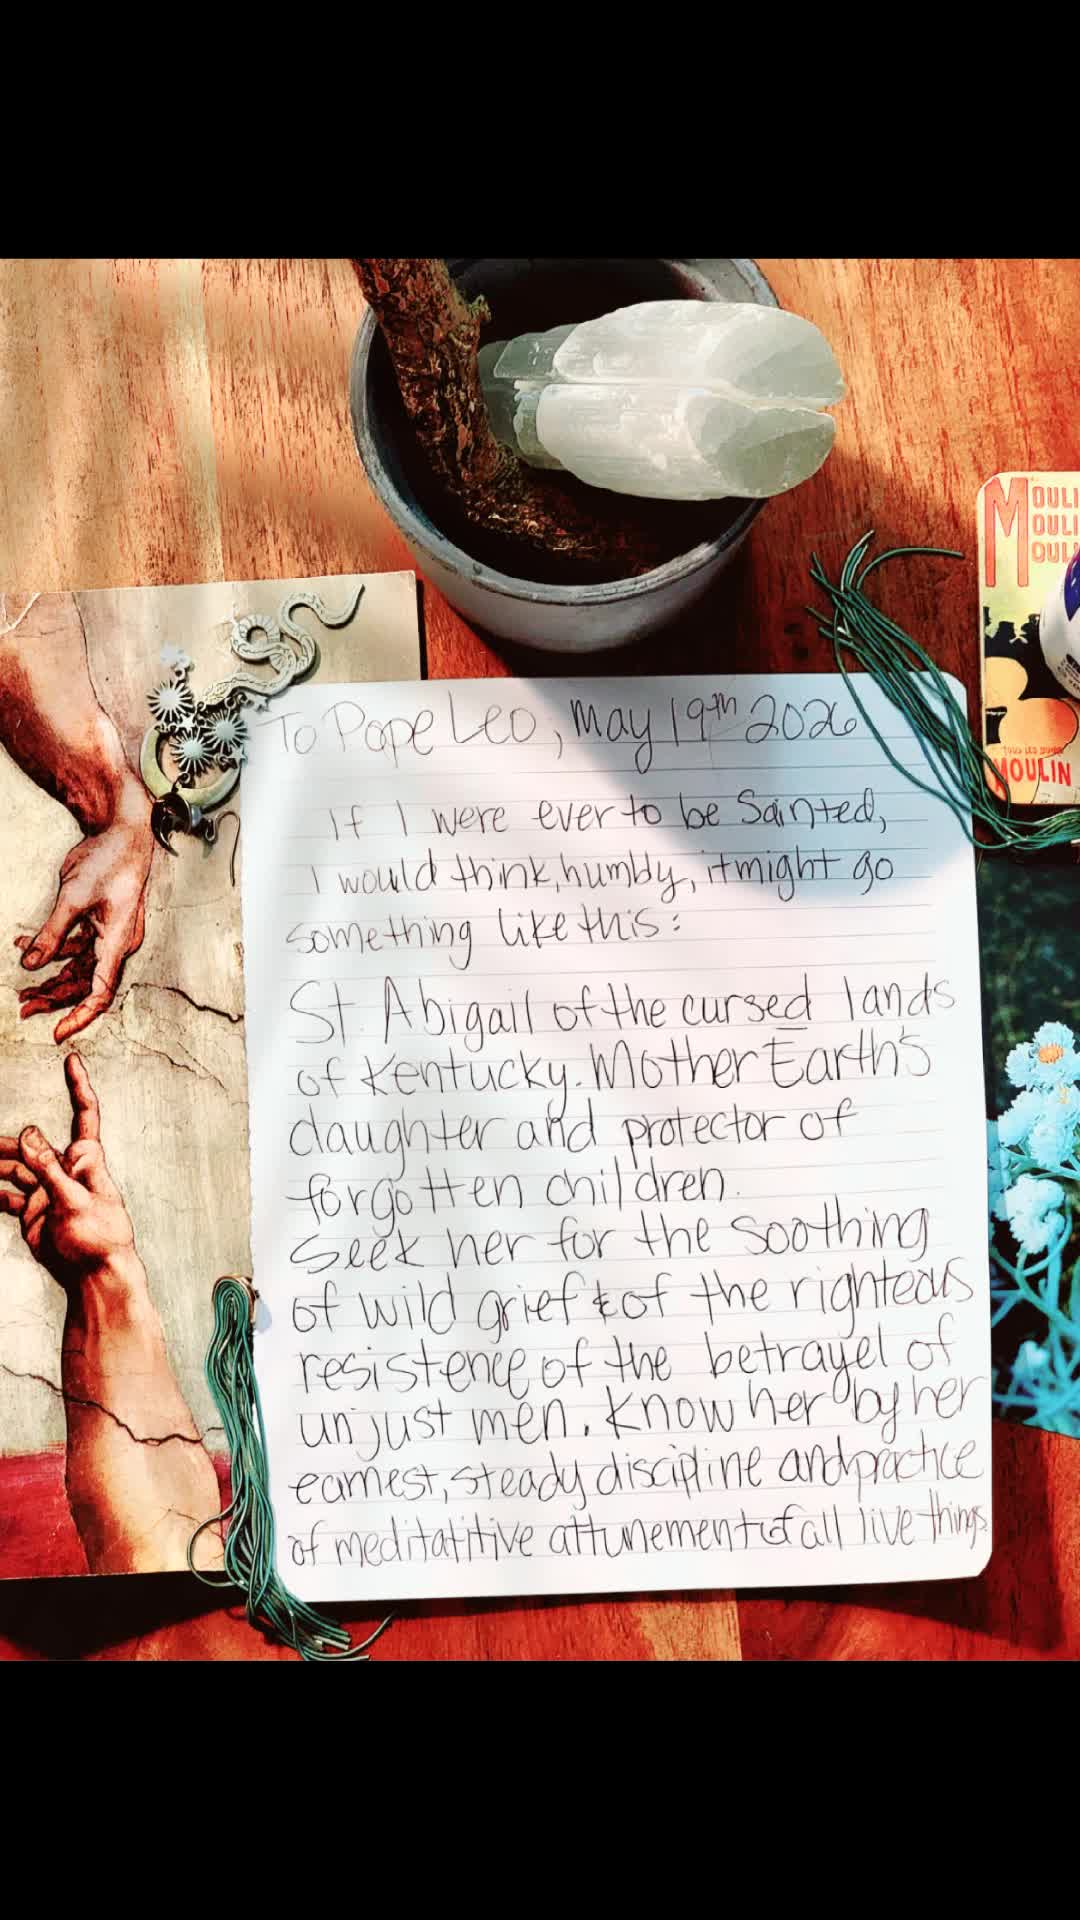 MOULI
OULI
OULI
TOUS LES
MOULIN
To Pope Leo, May 19th 2026
If I were ever to be Sainted,
I would think, humbly, it might go
something like this:
St. Abigail of the cursed lands
of Kentucky. Mother Earth's
daughter and protector of
forgotten children.
Seek her for the soothing
of wild grief & of the righteous
resistence of the betrayel of
unjust men. Know her by her
earnest, steady discipline and practice
of meditatitive attunement of all live things.